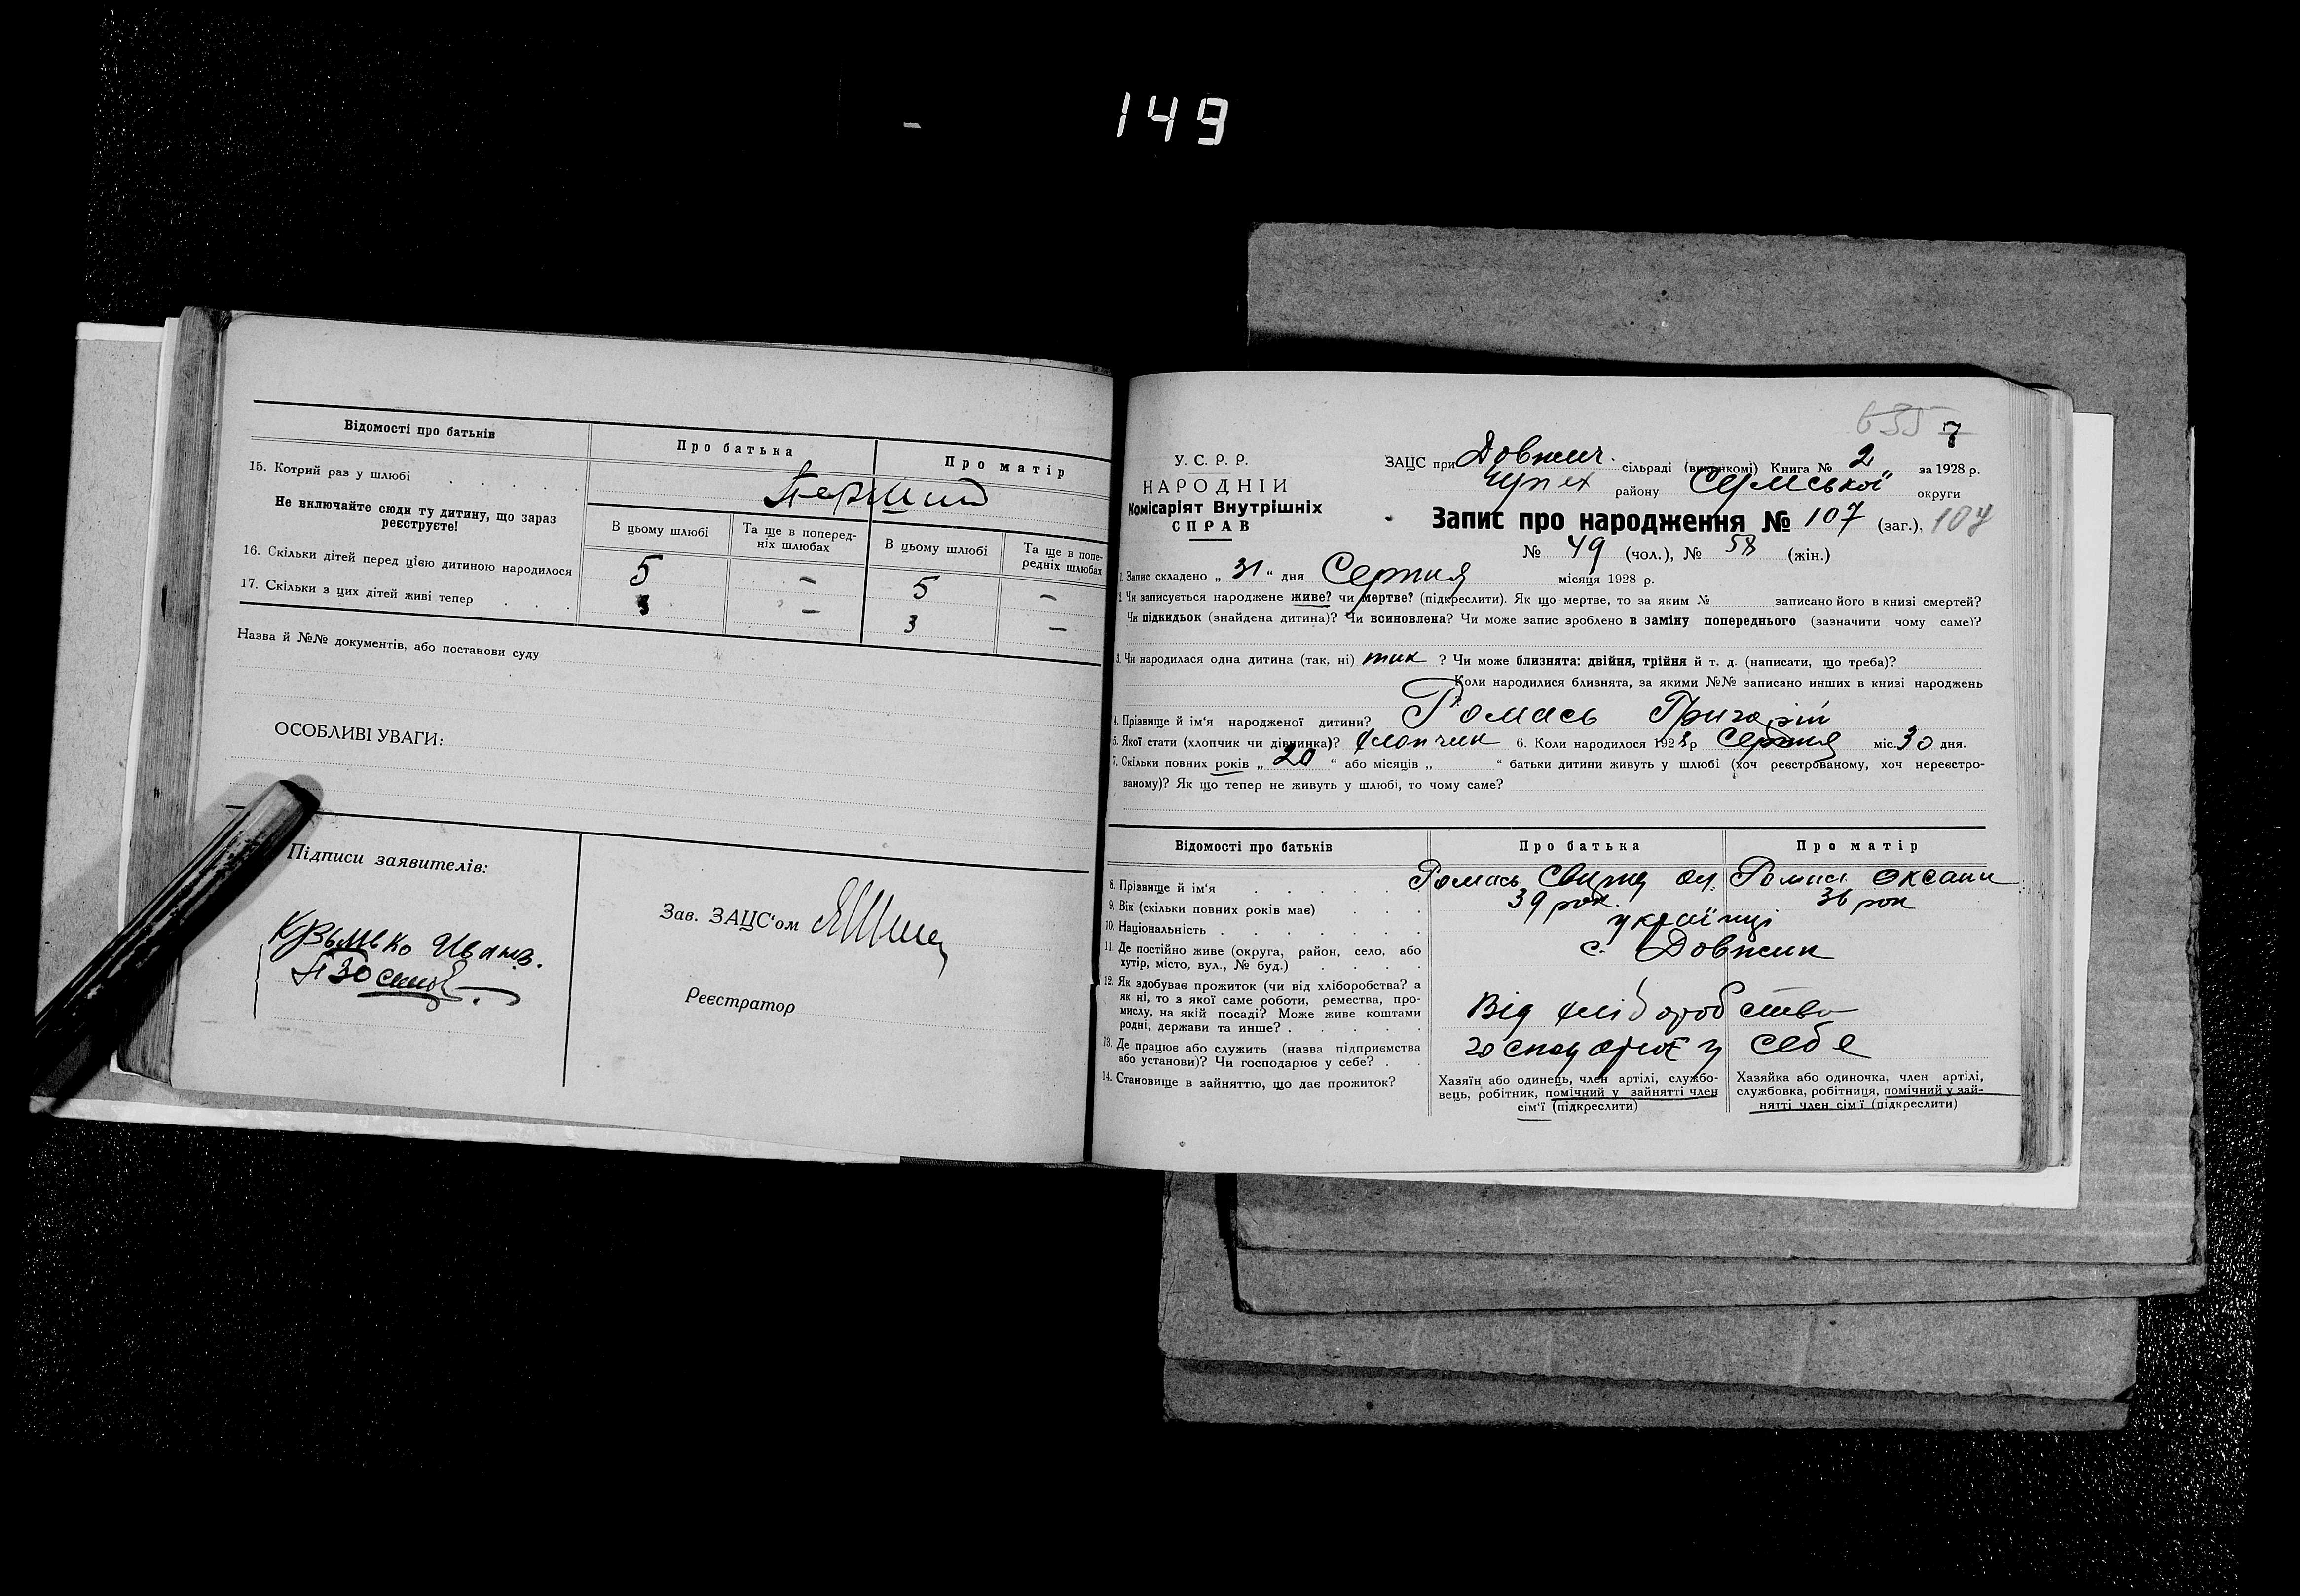 149
Відомості про батьків
Про батька
Про матір
15. Котрий раз у шлюбі
Перший
Не включайте сюди ту дитину, що зараз
реєструєте!
В цьому шлюбі
Та ще в поперед-
ніх шлюбах
В цьому шлюбі
Та ще в попе-
редніх шлюбах
16. Скільки дітей перед цією дитиною народилося
5 – 5 –
17. Скільки з цих дітей живі тепер
3 – 3 –
Назва й №№ документів, або постанови суду
ОСОБЛИВІ УВАГИ:
Підписи заявителів:
Зав. ЗАЦС'ом
Реєстратор
7
У. С. Р. Р.
НАРОДНІЙ
Комісаріят Внутрішніх
СПРАВ
ЗАЦС при Довжич. сільраді (виконкомі) Книга № 2 за 1928 р.
району Сумської округи
Запис про народження № 107 (заг.), 107
№ 49 (чол.), № 58 (жін.)
1. Запис складено „ 31 “ дня Серпня місяця 1928 р.
2. Чи записується народжене живе? чи мертве? (підкреслити). Як що мертве, то за яким № записано його в книзі смертей?
Чи підкидьок (знайдена дитина)? Чи всиновлена? Чи може запис зроблено в заміну попереднього (зазначити чому саме)?
3. Чи народилася одна дитина (так, ні) так ? Чи може близнята: двійня, трійня й т. д. (написати, що треба)?
Коли народилися близнята, за якими №№ записано инших в книзі народжень
?
4. Прізвище й ім'я народженої дитини? Ромась Григорій
5. Якої стати (хлопчик чи дівчинка)? хлопчик 6. Коли народилося 1928 р Серпня міс. 30 дня.
7. Скільки повних років „ 20 “ або місяців „ “ батьки дитини живуть у шлюбі (хоч реєстрованому, хоч нереєстро-
ваному)? Як що тепер не живуть у шлюбі, то чому саме?
Відомості про батьків
Про батька
Про матір
8. Прізвище й ім'я
Ромась
Ромась Оксана
9. Вік (скільки повних років має)
39 рок.
36 рок
10. Національність
українці
11. Де постійно живе (округа, район, село, або
хутір, місто, вул., № буд.)
с. Довжик
12. Як здобуває прожиток (чи від хліборобства? а
як ні, то з якої саме роботи, ремества, про-
мислу, на якій посаді? Може живе коштами
родні, держави та инше?
Від хліборобства
13. Де працює або служить (назва підприємства
або установи)? Чи господарює у себе?
господарює у себе
14. Становище в зайняттю, що дає прожиток?
Хазяїн або одинець, член артілі, службо-
вець, робітник, помічний у зайнятті член
сім'ї (підкреслити)
Хазяйка або одиночка, член артілі,
службовка, робітниця, помічний у зай-
нятті член сім'ї (підкреслити)